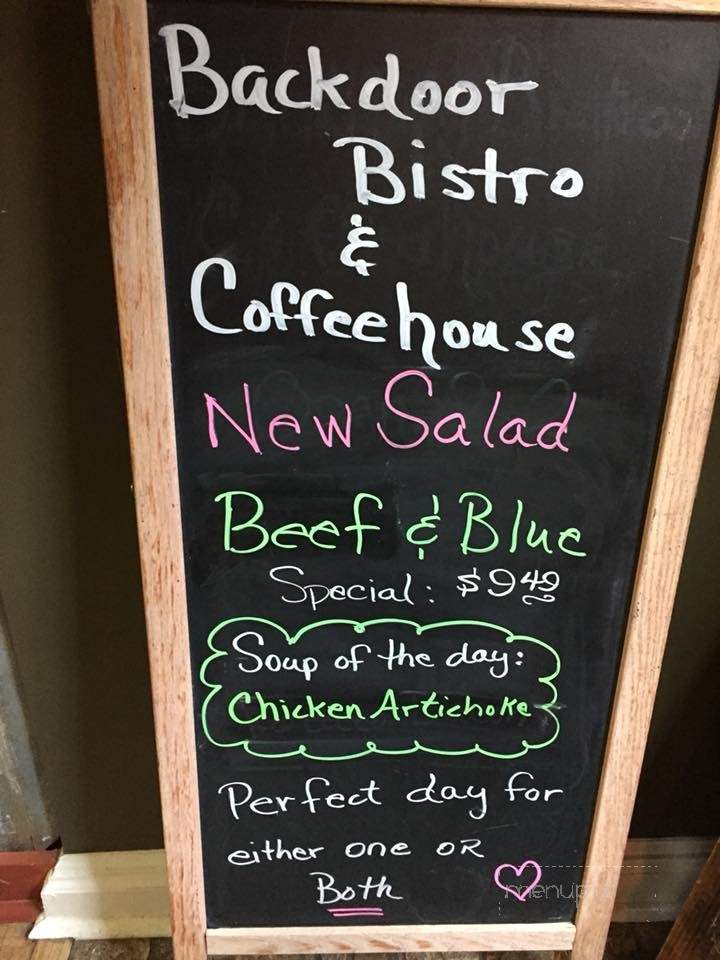 Backdoor
Bistro
&
Coffeehouse
New Salad
Beef & Blue
Special: $9.49
Soup of the day:
Chicken Artichoke
Perfect day for
either one OR
Both